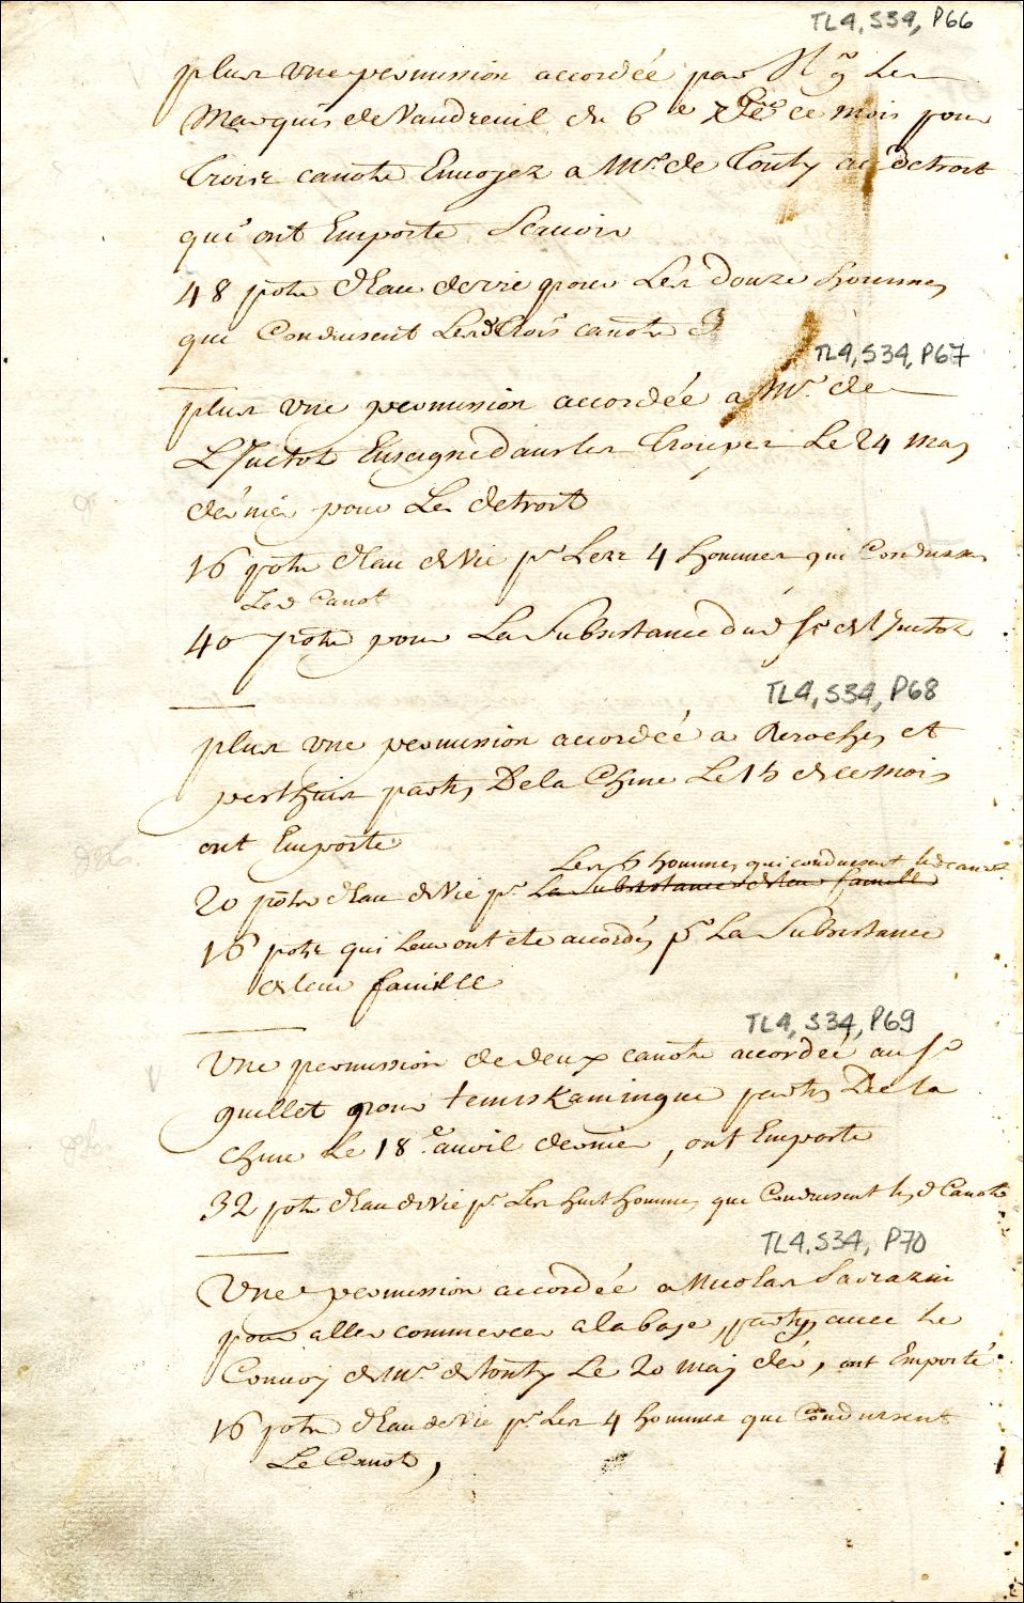 TL4, S34, P66
plus une permission accordée par Mgr Le
Marquis de Vaudreuil du 6e de ce mois pour
trois canots Envoyez a Mr. de Tonty au detroit
qui ont Emporté Scavoir
48 pots d'Eau de vie pour Les Douze hommes
qui Conduisent Lesd. trois canots
TL4, S34, P67
plus une permission accordée a Mr. de
L'Juctot Enseigne dans les troupes Le 24 may
dernier pour Le detroit
16 pots d'Eau de Vie pr Les 4 hommes qui Conduisen
Led Canot
40 pots pour La Subsistance dud Sr de l'Juctot
TL4, S34, P68
plus une permission accordée a Deroches et
perthuis partys De la Chine Le 15 de ce mois
ont Emporté
Les 5 hommes qui conduisent led canot
20 pots d'Eau de Vie pr La Subsistance de leur famille
16 pots qui leur ont été accordés pr La Subsistance
de leur famille
TL4, S34, P69
Une permission de deux canots accordée au Sr
guillet pour temiskamingue partys De la
chine le 18e avril dernier, ont Emporté
32 pots d'Eau de Vie pr Les huit hommes qui Conduisent lesd Canots
TL4, S34, P70
Une permission accordée a Nicolas Sarazin
pour aller commercer a la baye, partys avec le
Convoy de Mr. de tonty Le 20 may der, ont Emporté
16 pots d'Eau de Vie pr Les 4 hommes qui Conduisent
Le Canot,